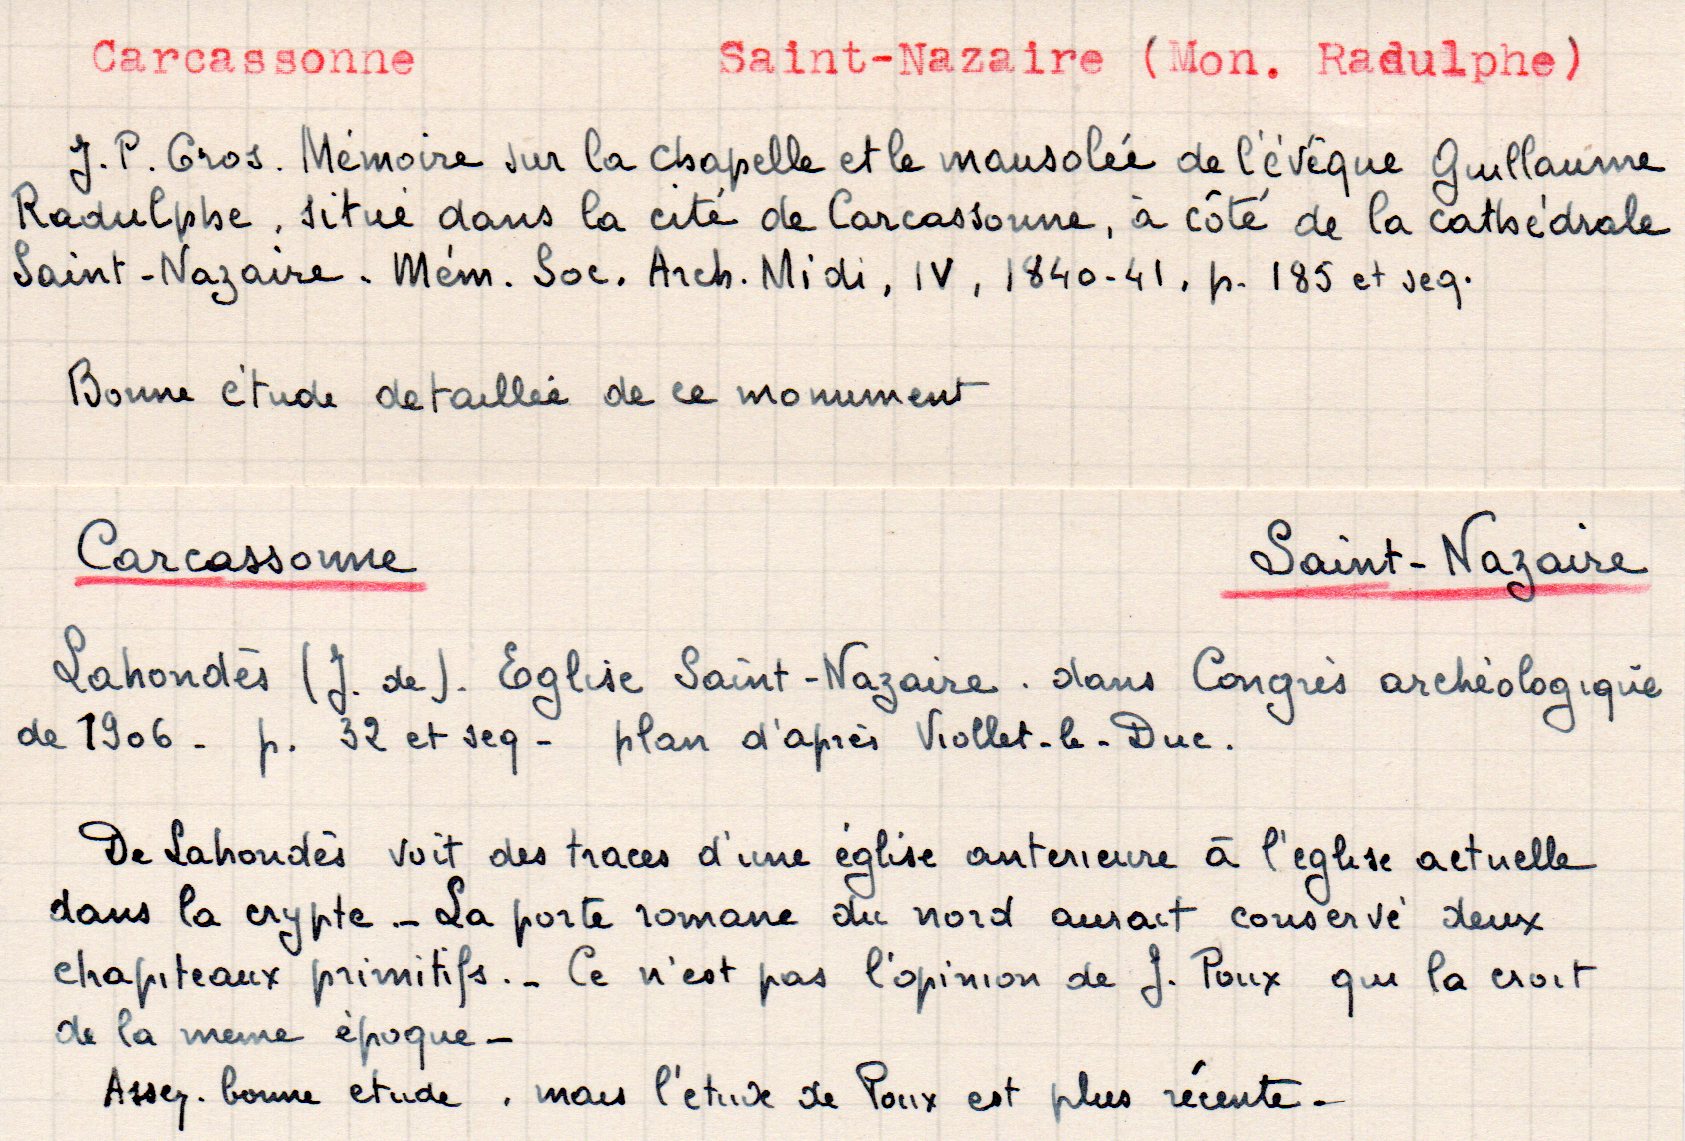 Carcassonne Saint-Nazaire (Mon. Radulphe)
J. P. Cros. Mémoire sur la chapelle et le mausolée de l'évêque Guillaume
Radulphe, situé dans la cité de Carcassonne, à côté de la cathédrale
Saint-Nazaire. Mém. Soc. Arch. Midi, IV, 1840-41, p. 185 et seq.
Bonne étude detaillée de ce monument
Carcassonne Saint-Nazaire
Lahondès (J. de). Eglise Saint-Nazaire. dans Congrès archéologique
de 1906 - p. 32 et seq - plan d'après Viollet-le-Duc.
De Lahondès voit des traces d'une église anterieure à l'eglise actuelle
dans la crypte - La porte romane du nord aurait conservé deux
chapiteaux primitifs. - Ce n'est pas l'opinion de J. Poux qui la croit
de la meme époque -
Assez bonne etude, mais l'etude de Poux est plus récente -